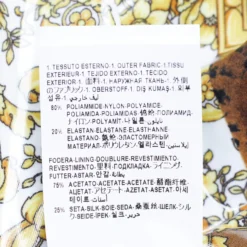 1. TESSUTO ESTERNO-1. OUTER FABRIC-1.TISSU
EXTERIEUR-1.TEJIDO EXTERNO-1.TECIDO
EXTERIOR-1. 面料-1. НАРУЖНАЯ ТКАНЬ-1. 外側
の ファブリック-1. OBERSTOFF-1. DIŞ KUMAŞ-1. 외부
섬유-1.
80% POLIAMMIDE-NYLON-POLYAMIDE-
POLIAMIDA-POLIAMIDAS-锦纶-ПОЛИАМИД-
ナイロン-POLYAMIT-나일론-نايلون
20% ELASTAN-ELASTANE-ELASTHANNE-
ELASTANO-氨纶-ЭЛАСТОМЕРНЫЙ
МАТЕРИАЛ-ポリウレタン-엘라스틴-إيلاستين
FODERA-LINING-DOUBLURE-REVESTIMIENTO-
REVESTIMENTO-里料-ПОДКЛАДКА-ライニング-
FUTTER-ASTAR-안감-بطانة
75% ACETATO-ACETATE-ACETATE-醋酯纤维-
АЦЕТАТ-アセテート-AZETAT-ASETAT-아세
테이트-أسيتات
25% SETA-SILK-SOIE-SEDA-桑蚕丝-ШЕЛК-シル
ク-SEIDE-İPEK-실크-حرير